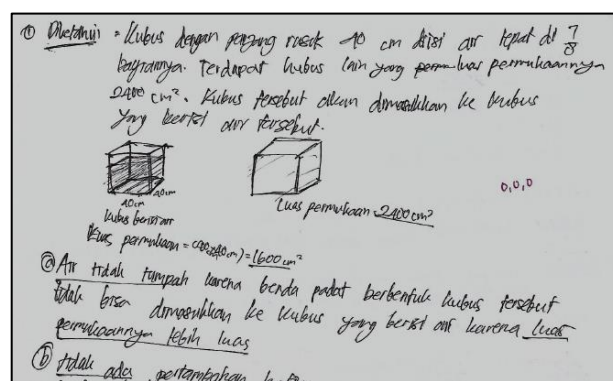 ① Diketahui = Kubus dengan panjang rusuk 40 cm diisi air tepat di 7/8
bagiannya. Terdapat kubus lain yang luas permukaannya
2400 cm². Kubus tersebut akan dimasukkan ke kubus
yang berisi air tersebut.
40cm 40cm
kubus berisi air
Luas permukaan 2400 cm²
0,0,0
Luas permukaan = (40x40cm) = 1600 cm²
ⓐ Air tidak tumpah karena benda padat berbentuk kubus tersebut
tidak bisa dimasukkan ke kubus yang berisi air karena luas
permukaannya lebih luas
ⓑ tidak ada pertambahan